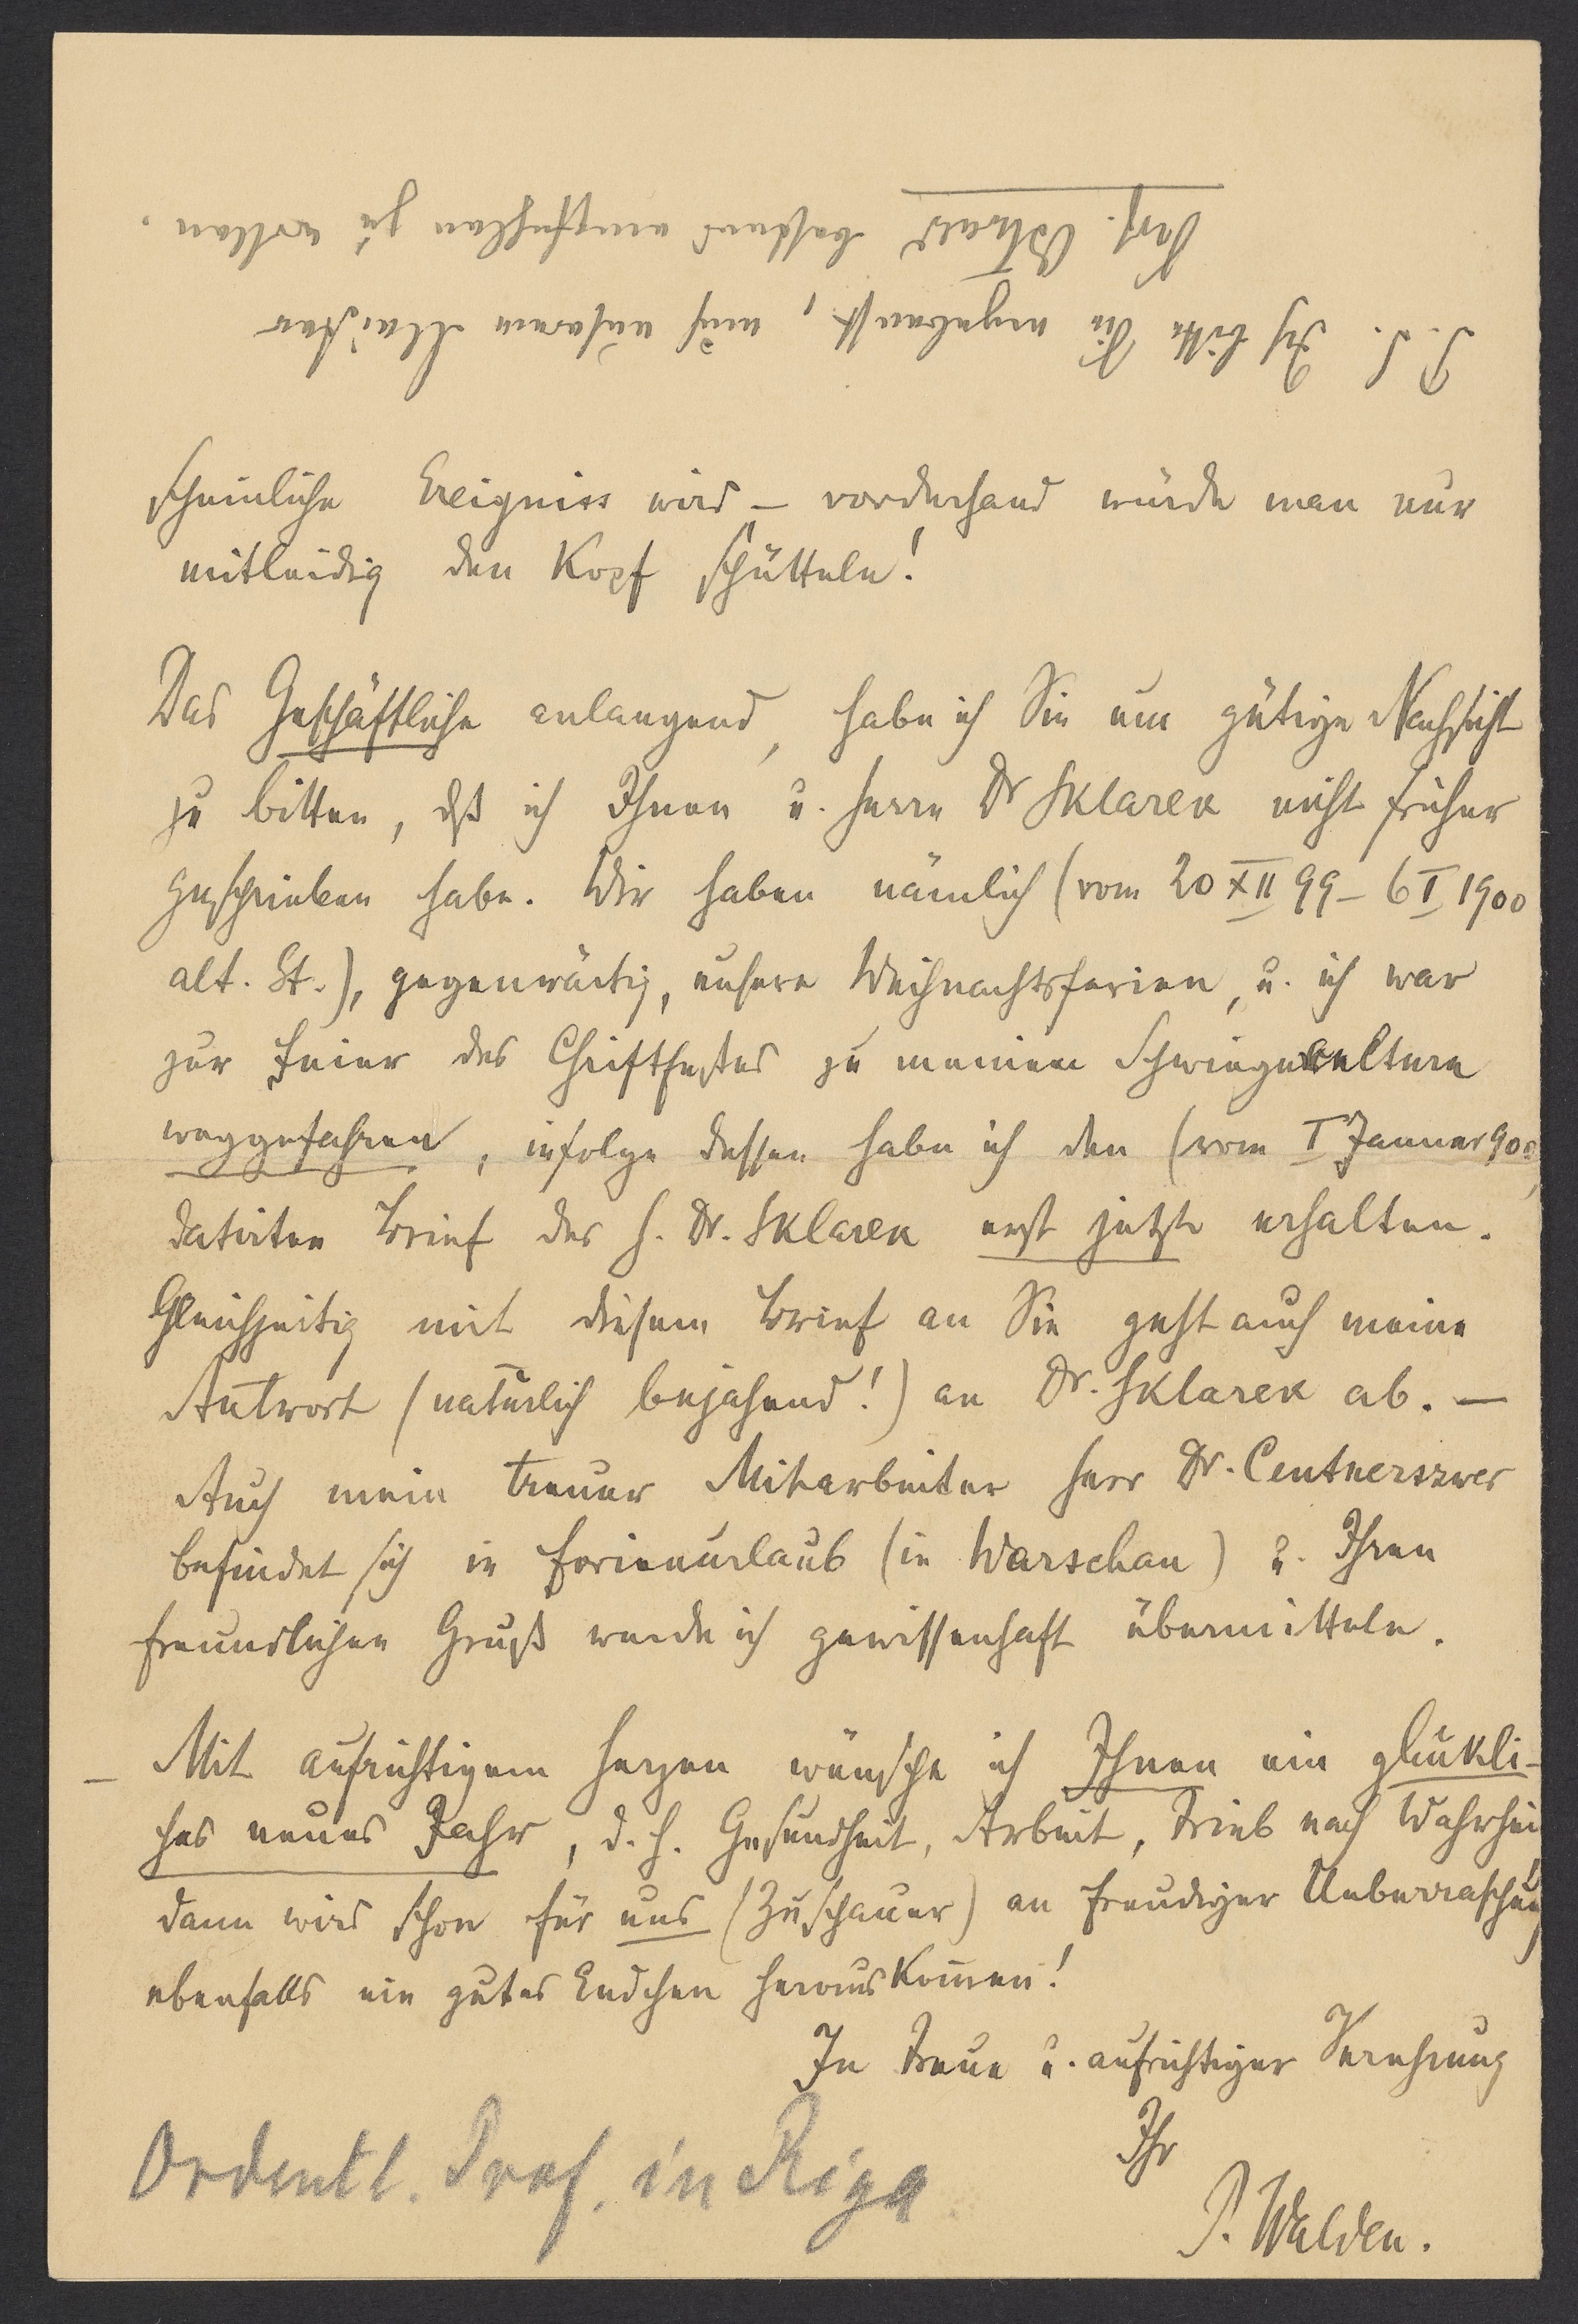 P. S. Ich bitte Sie ergebenst, mich unserem Meister
Prof. Ostwald bestens empfehlen zu wollen.
scheinliche Ereigniss wird – vorderhand würde man nur
mitleidig den Kopf schütteln!
Das Geschäftliche anlangend, habe ich Sie um gütige Nachsicht
zu bitten, dß ich Ihnen u. Herrn Dr Sklarek nicht früher
geschrieben habe. Wir haben nämlich (vom 20 XII 99 – 6 I 1900
alt. St.), gegenwärtig, unsere Weihnachtsferien, u. ich war
zur Feier des Christfestes zu meinen Schwiegereltern
weggefahren, infolge dessen habe ich den (vom I Januar 900
datirten Brief des H. Dr. Sklarek erst jetzt erhalten.
Gleichzeitig mit diesem Brief an Sie geht auch meine
Antwort (natürlich bejahend!) an Dr. Sklarek ab. –
Auch mein treuer Mitarbeiter Herr Dr. Centnerszwer
befindet sich in Ferienurlaub (in Warschau) u. Ihren
freundlichen Gruß werde ich gewissenhaft übermitteln.
– Mit aufrichtigem Herzen wünsche ich Ihnen ein glükli-
ches neues Jahr, d. h. Gesundheit, Arbeit, Trieb nach Wahrhei
dann wird schon für uns (Zuschauer) an freudiger Ueberraschung
ebenfalls ein gutes Endchen herauskom̅en!
In Treue u. aufrichtiger Verehrung
Ihr
P. Walden.
Ordentl. Prof. in Riga